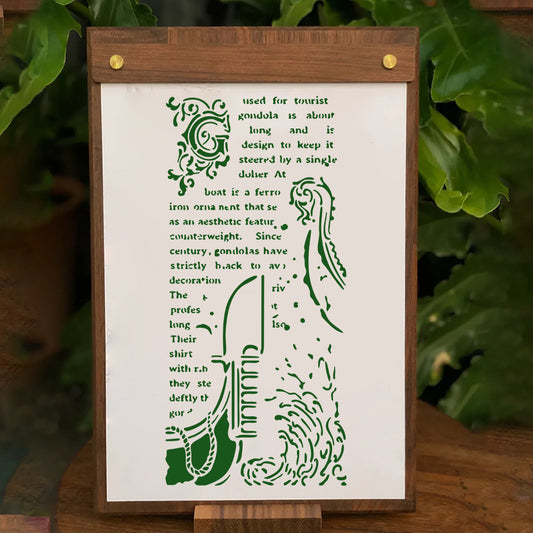 G used for tourist
gondola is about
long and is
design to keep it
steered by a single
At
boat is a ferro
iron ornament that se
as an aesthetic featur
counterweight. Since
century, gondolas have
strictly black to av
decoration
The riv
profes
long lso
Their
shirt
with
they ste
deftly th